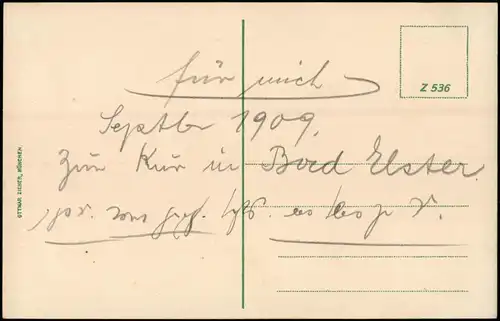 für mich
Z 536
Septbr 1909.
Zur Kur in Bad Elster
OTTMAR ZIEHER, MÜNCHEN.